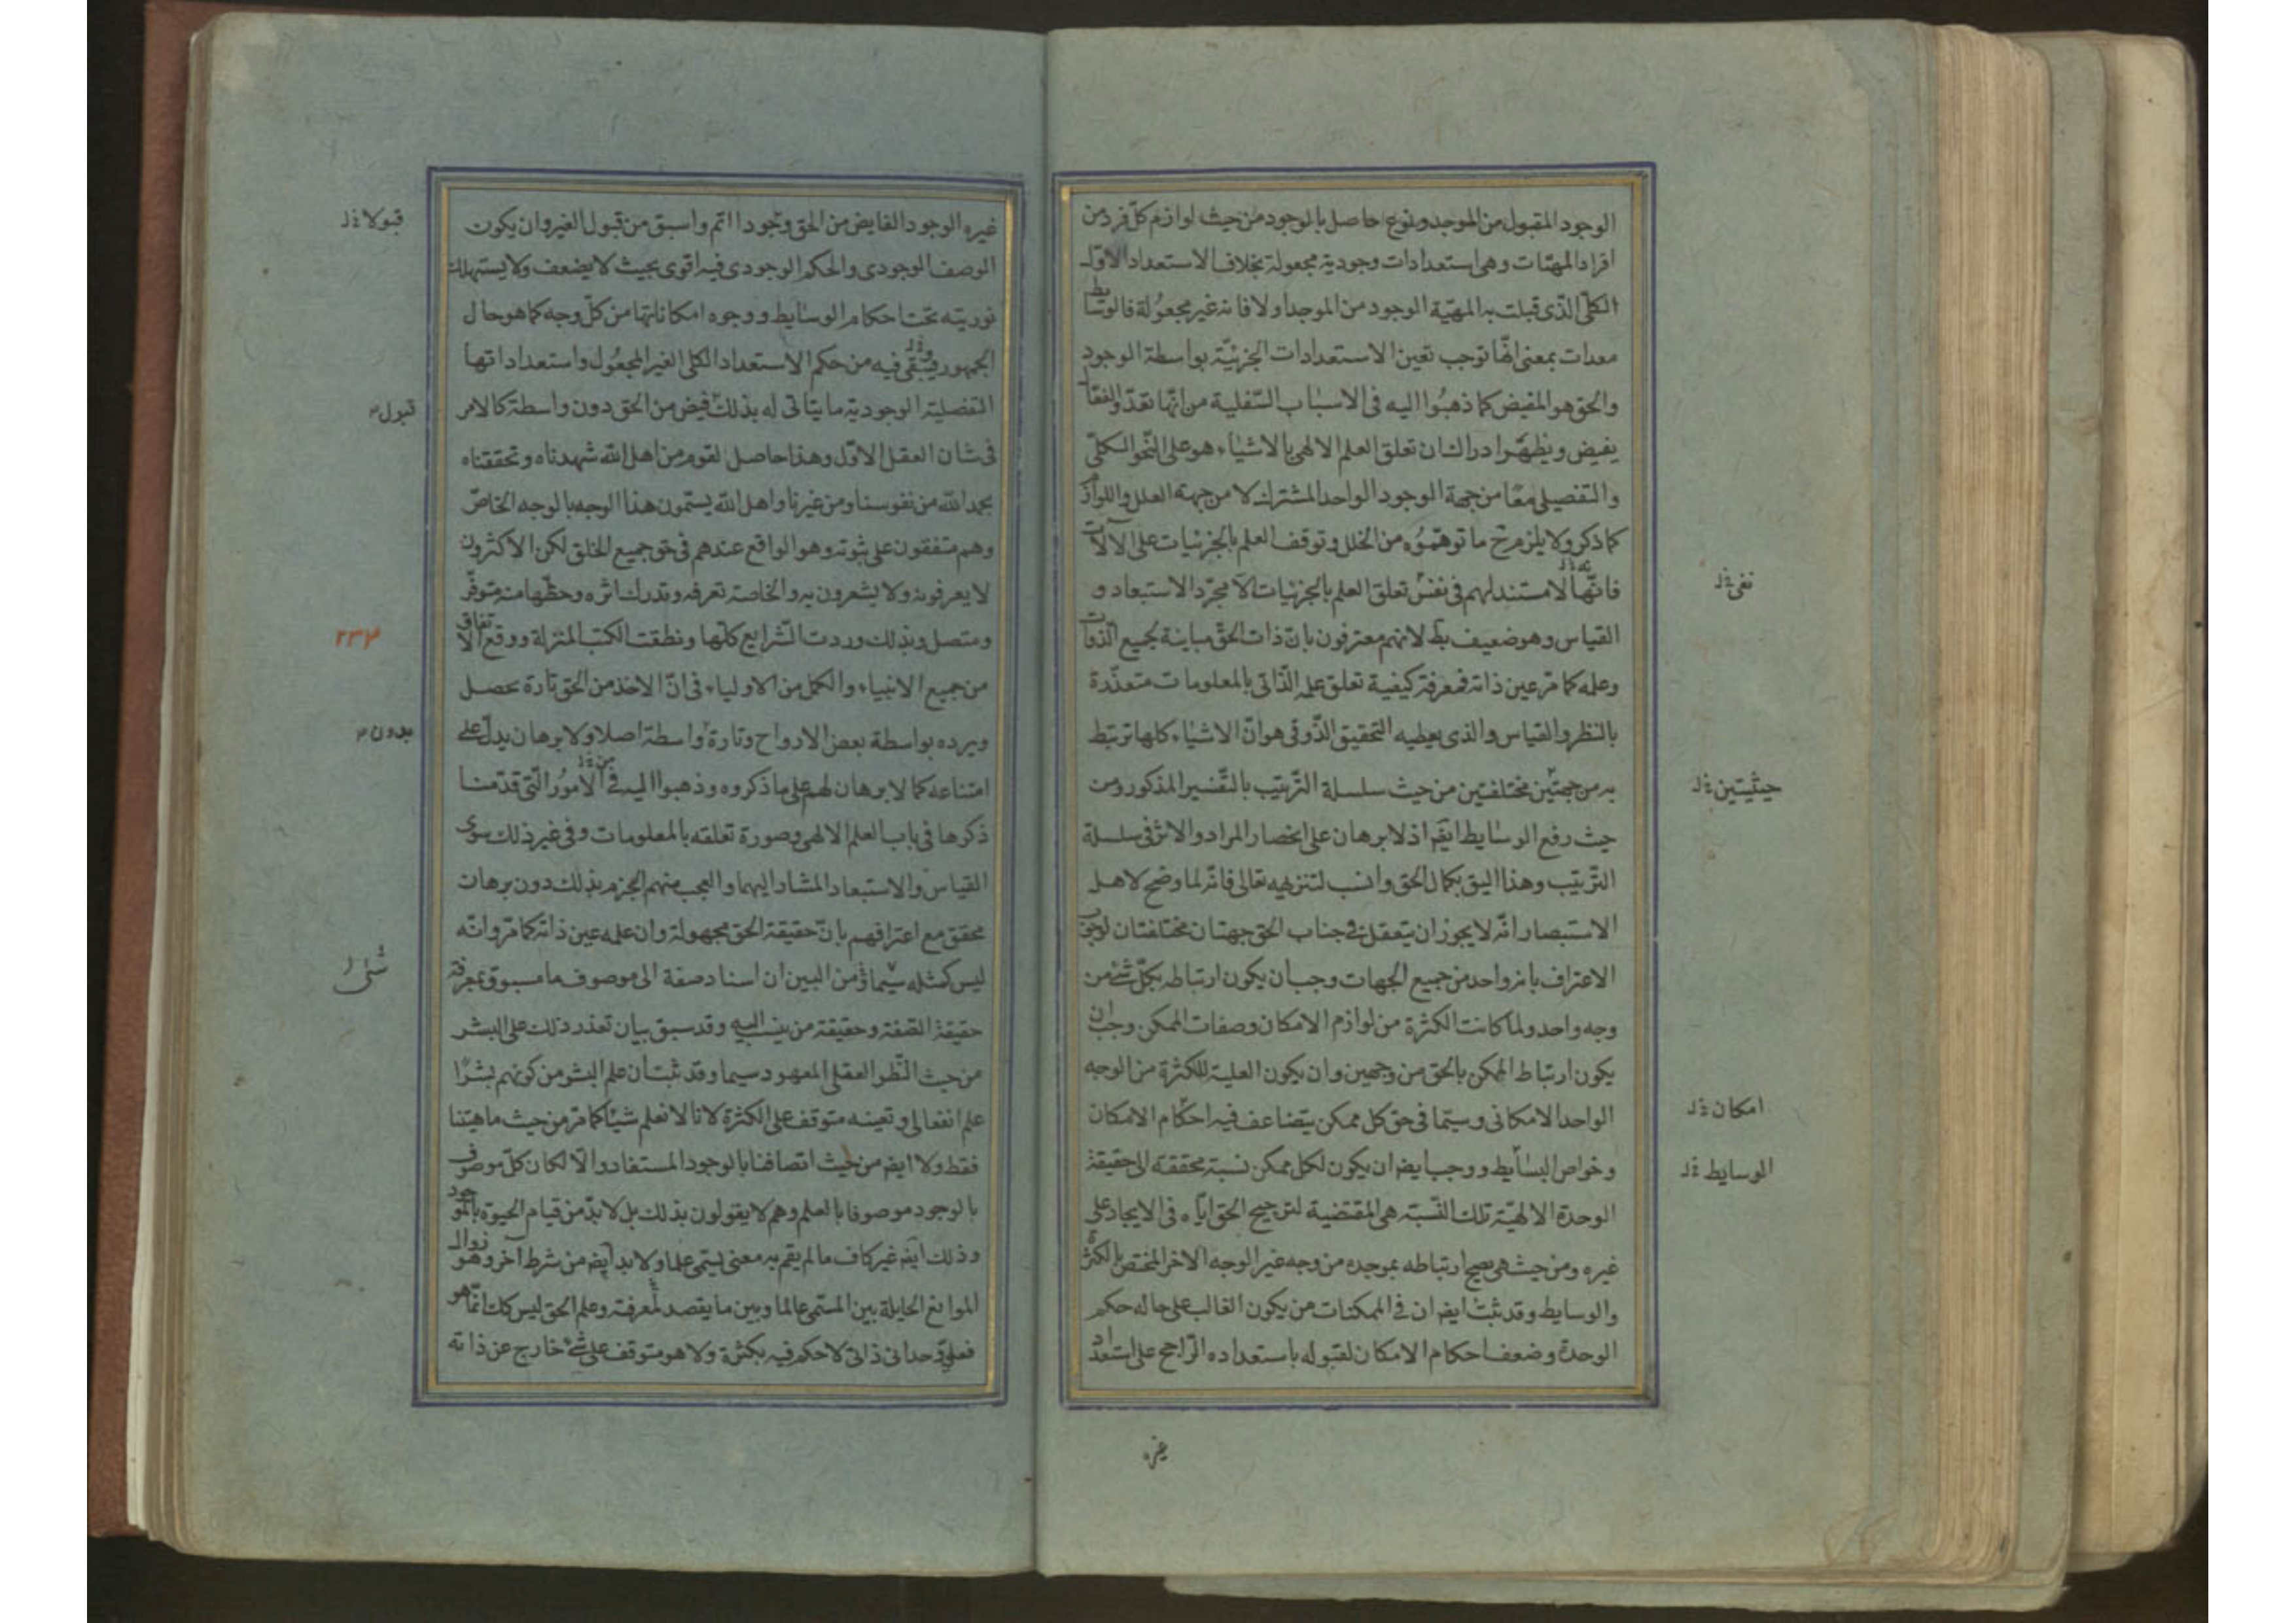 الوجود المقبول من الموجد ونوع حاصل بالوجود من حيث لوازم كلّ فرد من
افراد المهيّات وهى استعدادات وجودية مجعولة بخلاف الاستعداد الاوّل
الكلّى الذّى قبلت به المهيّة الوجود من الموجد اولا فانه غير مجعُولة فالوسايط
معدات بمعنى انّها توجب تعين الاستعدادات الجزئيّة بواسطة الوجود
والحق هو المفيض كما ذهبُوا اليه فى الاسباب السّفلية من انّها تعدّ والفعّال
يفيض ويظهر ادراك ان تعلق العلم الالهى بالاشياء هو على النّحو الكلّىّ
والتفصيلى معًا من جهة الوجود الواحد المشترك لا من جهة العلل واللوازم
كما ذكر ولا يلزم ح ما توهّموُه من الخلل وتوقف العلم بالجزئيات على الآلات
فانّها لا مستند لهم فى نفس تعلق العلم بالجزئيات الّا مجرّد الاستبعاد و
القياس وهو ضعيف بط لانهم معترفون بانّ ذات الحقّ مباينة لجميع الذّوات
وعلمه كما مرّ عين ذاته فمعرفة كيفية تعلق علمه الذّاتى بالمعلومات متعذّرة
بالنظر والقياس والذى يعطيه التحقيق الذّوقى هو انّ الاشياء كلها ترتبط
به من جهتين مختلفتين من حيث سلسلة التّرتيب بالتّفسير المذكور ومن
حيث رفع الوسايط ايضا اذ لا برهان على انحصار المراد والاثر فى سلسلة
التّرتيب وهذا اليق بكمال الحق وانسب لتنزيهه تعالى فانّه لما وضح لاهل
الاستبصار انّه لا يجوز ان يتعقل فى جناب الحق جهتان مختلفتان لوجوب
الاعتراف بانه واحد من جميع الجهات وجب ان يكون ارتباطه بكلّ شئ من
وجه واحد ولما كانت الكثرة من لوازم الامكان وصفات الممكن وجب ان
يكون ارتباط الممكن بالحق من وجهين وان يكون العلية للكثرة من الوجه
الواحد الامكانى وسيّما فى حق كل ممكن يتضاعف فيه احكام الامكان
وخواص البسائط ووجب ايضا ان يكون لكل ممكن نسبة محققة الى حقيقة
الوحدة الالهيّة تلك النّسبة هى المقتضية لترجيح الحق ايّاه فى الايجاد على
غيره ومن حيث هى يصح ارتباطه بموجده من وجه غير الوجه الاخر المختص بالكثرة
والوسايط وقد ثبت ايضا ان فى الممكنات من يكون الغالب على حاله حكم
الوحدة وضعف احكام الامكان لقبوله باستعداده الرّاجح على استعداد
غيره
نفى خ ل
حيثيتين خ ل
امكان خ ل
الوسايط خ ل
غيره الوجود الفايض من الحق وجودا اتم واسبق من قبول الغير وان يكون
الوصف الوجودى والحكم الوجودى فيه اقوى بحيث لا يضعف ولا يستهلك
نوريته تحت احكام الوسايط ووجوه امكاناتها من كلّ وجه كما هو حال
الجمهور فيُبقى فيه من حكم الاستعداد الكلى الغير المجعُول واستعداداتها
التفصلية الوجودية ما يتاتى له بذلك فيض من الحق دون واسطة كالامر
فى شان العقل الاوّل وهذا حاصل لقوم من اهل الله شهدناه وتحققناه
بحمد الله من نفوسنا ومن غيرنا واهل الله يسمّون هذا الوجه بالوجه الخاصّ
وهم متفقون على ثبوته وهو الواقع عندهم فى حق جميع الخلق لكن الاكثرون
لا يعرفونه ولا يشعرون به والخاصة تعرفه وتدرك اثره وحظّها منه متوفّر
ومتصل وبذلك وردت الشّرايع كلّها ونطقت الكتب المنزلة ووقع الاتفاق
من جميع الانبياء والكمل من الاولياء فى انّ الاخذ من الحق تارة يحصل
ويرده بواسطة بعض الارواح وتارة واسطة اصلا ولا برهان يدلّ على
امتناعه كما لا برهان لهم على ما ذكروه وذهبوا اليه فى الامُور الّتى قدّمنا
ذكرها فى باب العلم الالهى وصورة تعلقه بالمعلومات وفى غير ذلك سوى
القياس والاستبعاد المشار اليهما والعجب منهم الجزم بذلك دون برهان
محقق مع اعترافهم بانّ حقيقة الحق مجهولة وان علمه عين ذاته كما مرّ وانّه
ليس كمثله سيّما ومن البين ان اسناد صفة الى موصوف ما مسبوق بمعرفة
حقيقة الصّفة وحقيقة من ينسب اليه وقد سبق بيان تعذر ذلك على البشر
من حيث النّظر العقلى المعهود سيما وقد ثبت ان علم البشر من كونهم بشرًا
علم انفعالى وتعينه متوقف على الكثرة لانا لا نعلم شيئا كما مرّ من حيث ماهيتنا
فقط ولا ايضا من حيث اتصافنا بالوجود المستفاد والّا لكان كلّ موصوف
بالوجود موصوفا بالعلم وهم لا يقولون بذلك بل لا بدّ من قيام الحيوة بالموجود
وذلك ايضا غير كاف ما لم يقم به معنى يسمى علما ولا بد ايضا من شرط آخر وهو زوال
الموانع الحايلة بين المسمى عالما وبين ما يقصد لمعرفته وعلم الحق ليس كك انّما هو
فعلىّ وحدانى ذاتى لا حكم فيه بكثرة ولا هو متوقف على شئ خارج عن ذاته
قبولا خ ل
قبول
٢٣٤
بدون
شئ